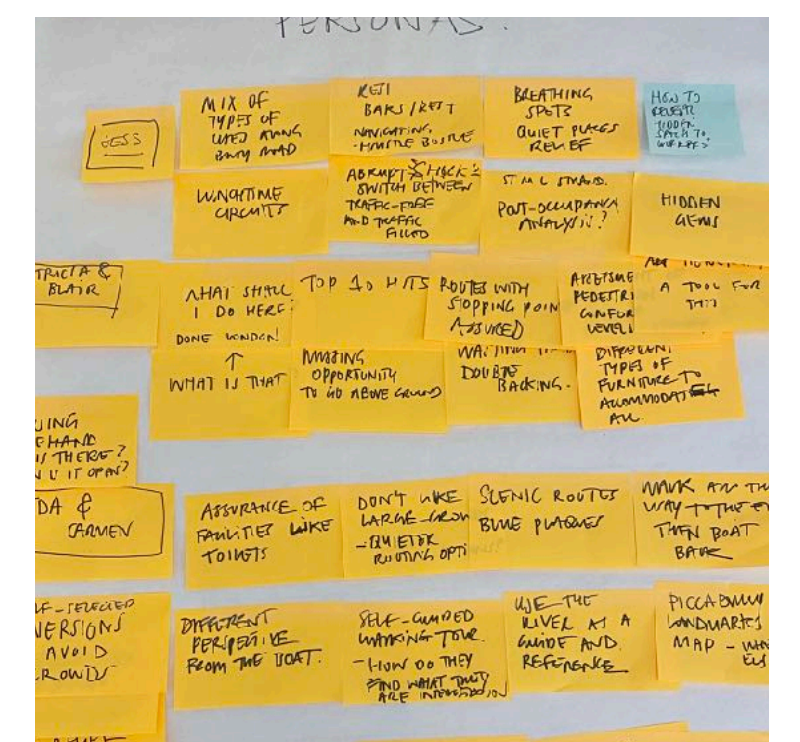 PERSONAS.
JESS
MIX OF
TYPES OF
USES ALONG
BUSY ROAD
REST
BARS/REST
NAVIGATING
HUSTLE BUSTLE
BREATHING
SPOTS
QUIET PLACES
RELIEF
HOW TO
REVEAL
HIDDEN
LUNCHTIME
CIRCUITS
ABRUPT
SWITCH BETWEEN
TRAFFIC-FREE
AND TRAFFIC
FILLED
STRAND.
POST-OCCUPANCY
ANALYSIS?
HIDDEN
GEMS
TRICIA &
BLAIR
WHAT SHALL
I DO HERE?
DONE LONDON!
TOP 10 HITS
ROUTES WITH
STOPPING POIN
ASSURED
PEDESTRI
LEVEL
A TOOL FOR
THIS
↑
WHAT IS THAT
MISSING
OPPORTUNITY
TO GO ABOVE GROUND
WAITING
DOUBLE
BACKING.
DIFFERENT
TYPES OF
FURNITURE TO
ACCOMMODATE
ALL
S THERE?
IS IT OPEN?
DA &
CARMEN
ASSURANCE OF
FACILITIES LIKE
TOILETS
DON'T LIKE
LARGE-CROW
- QUIETER
ROUTING OPTI
SCENIC ROUTES
BLUE PLAQUES
WALK ALL TH
WAY TO THE
THEN BOAT
BACK
LF-SELECTED
VERSIONS
AVOID
CROWDS
DIFFERENT
PERSPECTIVE
FROM THE BOAT.
SELF-GUIDED
WALKING TOUR.
- HOW DO THEY
FIND WHAT THEY
ARE INTERESTED IN
USE THE
RIVER AS A
GUIDE AND
REFERENCE
PICCADILLY
LANDMARKS
MAP -